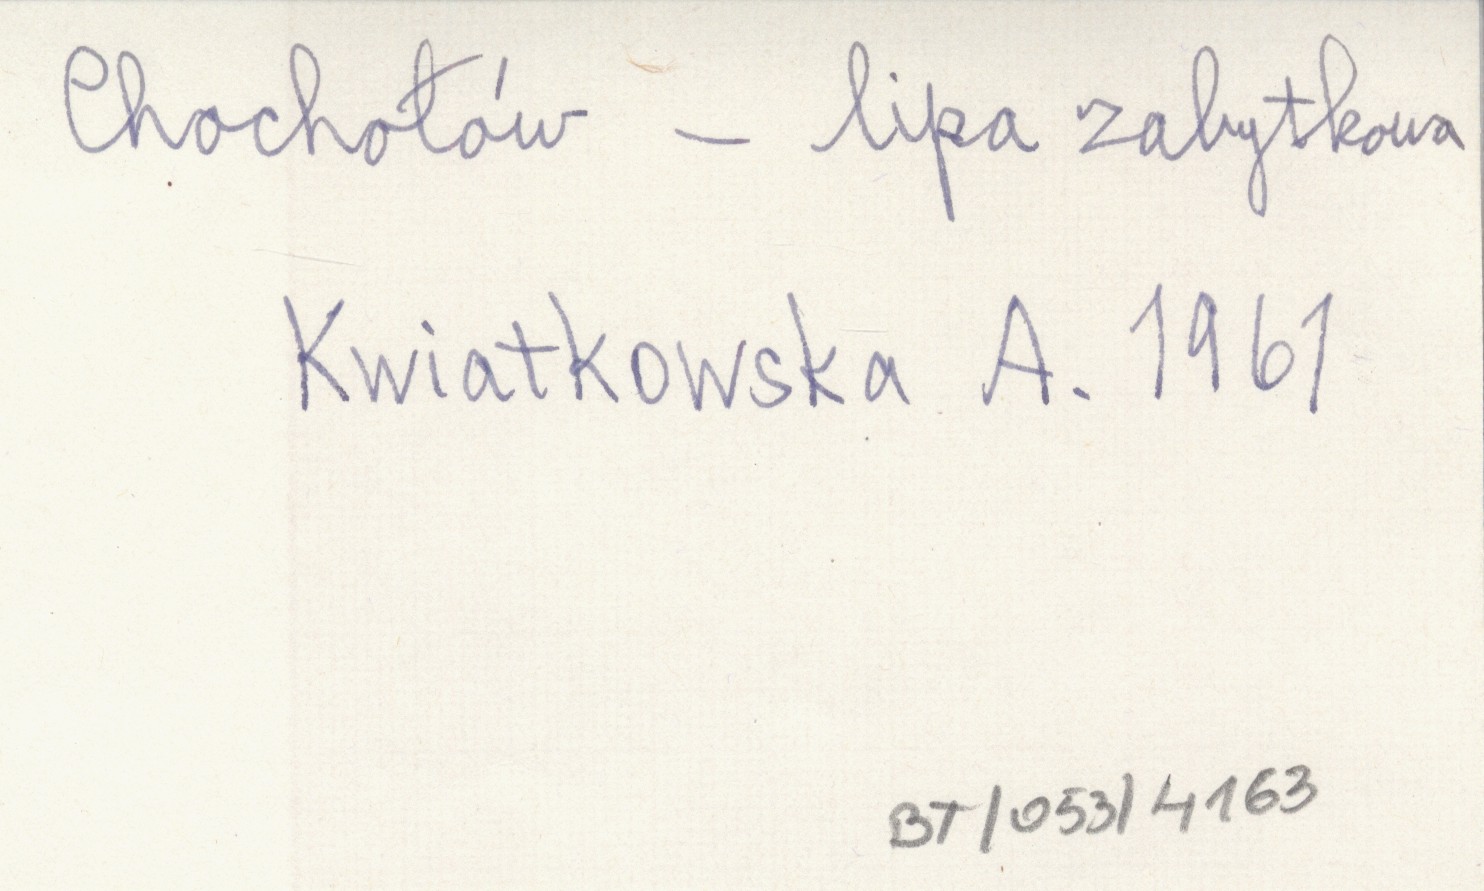 Chochołów - lipa zabytkowa
Kwiatkowska A. 1961
BT/053/4163